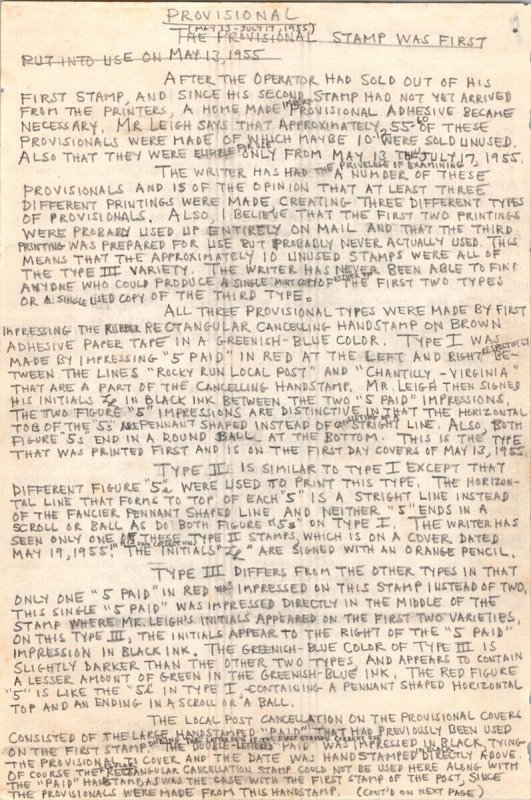 PROVISIONAL
(MAY 13 - JULY 17, 1955)
THE PROVISIONAL STAMP WAS FIRST
PUT INTO USE ON MAY 13, 1955
AFTER THE OPERATOR HAD SOLD OUT OF HIS
FIRST STAMP, AND SINCE HIS SECOND STAMP HAD NOT YET ARRIVED
FROM THE PRINTERS, A HOME MADE PROVISIONAL ADHESIVE BECAME
NECESSARY. MR LEIGH SAYS THAT APPROXIMATELY 55-60 OF THESE
PROVISIONALS WERE MADE OF WHICH MAYBE 10-12 WERE SOLD UNUSED.
ALSO THAT THEY WERE ELIGIBLE FOR USE ONLY FROM MAY 13 TO JULY 17, 1955.
THE WRITER HAS HAD THE PRIVELEGE OF EXAMINING A NUMBER OF THESE
PROVISIONALS AND IS OF THE OPINION THAT AT LEAST THREE
DIFFERENT PRINTINGS WERE MADE CREATING THREE DIFFERENT TYPES
OF PROVISIONALS. ALSO, I BELIEVE THAT THE FIRST TWO PRINTINGS
WERE PROBABLY USED UP ENTIRELY ON MAIL AND THAT THE THIRD
PRINTING WAS PREPARED FOR USE BUT PROBABLY NEVER ACTUALLY USED. THIS
MEANS THAT THE APPROXIMATELY 10 UNUSED STAMPS WERE ALL OF
THE TYPE III VARIETY. THE WRITER HAS NEVER BEEN ABLE TO FIND
ANYONE WHO COULD PRODUCE A SINGLE MINT COPY OF EITHER OF THE FIRST TWO TYPES
OR A SINGLE USED COPY OF THE THIRD TYPE.
ALL THREE PROVISIONAL TYPES WERE MADE BY FIRST
IMPRESSING THE RUBBER RECTANGULAR CANCELLING HANDSTAMP ON BROWN
ADHESIVE PAPER TAPE IN A GREENISH-BLUE COLOR. TYPE I WAS
MADE BY IMPRESSING "5 PAID" IN RED AT THE LEFT AND RIGHT RESPECTIVELY BE-
TWEEN THE LINES "ROCKY RUN LOCAL POST" AND "CHANTILLY - VIRGINIA"
THAT ARE A PART OF THE CANCELLING HANDSTAMP. MR. LEIGH THEN SIGNED
HIS INITIALS IN BLACK INK BETWEEN THE TWO "5 PAID" IMPRESSIONS.
THE TWO FIGURE "5" IMPRESSIONS ARE DISTINCTIVE IN THAT THE HORIZONTAL
TOP OF THE 5s ARE PENNANT SHAPED INSTEAD OF CONSISTING OF STRAIGHT LINE. ALSO, BOTH
FIGURE "5s" END IN A ROUND BALL AT THE BOTTOM. THIS IS THE TYPE
THAT WAS PRINTED FIRST AND IS ON THE FIRST DAY COVERS OF MAY 13, 1955.
TYPE II IS SIMILAR TO TYPE I EXCEPT THAT
DIFFERENT FIGURE "5s" WERE USED TO PRINT THIS TYPE. THE HORIZON-
TAL LINE THAT FORMS TO TOP OF EACH "5" IS A STRIGHT LINE INSTEAD
OF THE FANCIER PENNANT SHAPED LINE AND NEITHER "5" ENDS IN A
SCROLL OR BALL AS DO BOTH FIGURE "5s" ON TYPE I. THE WRITER HAS
SEEN ONLY ONE OF THESE TYPE II STAMPS, WHICH IS ON A COVER DATED
MAY 19, 1955 IN HIS OWN COLLECTION. THE INITIALS ARE SIGNED WITH AN ORANGE PENCIL.
TYPE III DIFFERS FROM THE OTHER TYPES IN THAT
ONLY ONE "5 PAID" IN RED WAS IMPRESSED ON THIS STAMP INSTEAD OF TWO.
THIS SINGLE "5 PAID" WAS IMPRESSED DIRECTLY IN THE MIDDLE OF THE
STAMP WHERE MR. LEIGH'S INITIALS APPEARED ON THE FIRST TWO VARIETIES.
ON THIS TYPE III, THE INITIALS APPEAR TO THE RIGHT OF THE "5 PAID"
IMPRESSION IN BLACK INK. THE GREENISH-BLUE COLOR OF TYPE III IS
SLIGHTLY DARKER THAN THE OTHER TWO TYPES AND APPEARS TO CONTAIN
A LESSER AMOUNT OF GREEN IN THE GREENISH-BLUE INK. THE RED FIGURE
"5" IS LIKE THE "5s" IN TYPE I, CONTAINING A PENNANT SHAPED HORIZONTAL
TOP AND AN ENDING IN A SCROLL OR A BALL.
THE LOCAL POST CANCELLATION ON THE PROVISIONAL COVERS
CONSISTED OF THE LARGE HANDSTAMPED "PAID" THAT HAD PREVIOUSLY BEEN USED
ON THE FIRST STAMP DURING THE LATTER DAYS OF THE FIRST STAMPS CURRENT USE. THE DOUBLE-LETTERED "PAID" WAS IMPRESSED IN BLACK, TYING
THE PROVISIONAL TO COVER AND THE DATE WAS HANDSTAMPED DIRECTLY ABOVE.
OF COURSE THE RECTANGULAR CANCELLATION STAMP COULD NOT BE USED HERE ALONG WITH
THE "PAID" HANDSTAMP, AS WAS THE CASE WITH THE FIRST STAMP OF THE POST, SINCE
THE PROVISIONALS WERE MADE FROM THIS HANDSTAMP. (CONT'D ON NEXT PAGE)